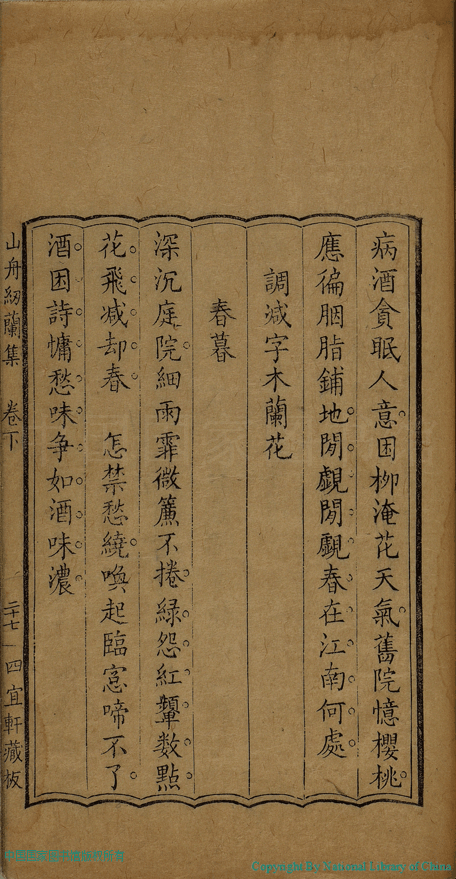 病酒貪眠人意困柳淹花天氣舊院憶櫻桃
應徧胭脂鋪地閒覷閒覷春在江南何處
調減字木蘭花
春暮
深沉庭院細雨霏微簾不捲綠怨紅顰数點
花飛减却春　怎禁愁繞喚起臨窓啼不了
酒困詩慵愁味争如酒味濃
山舟紉蘭集　卷下　二十七　四宜軒藏板
Copyright By National Library of China